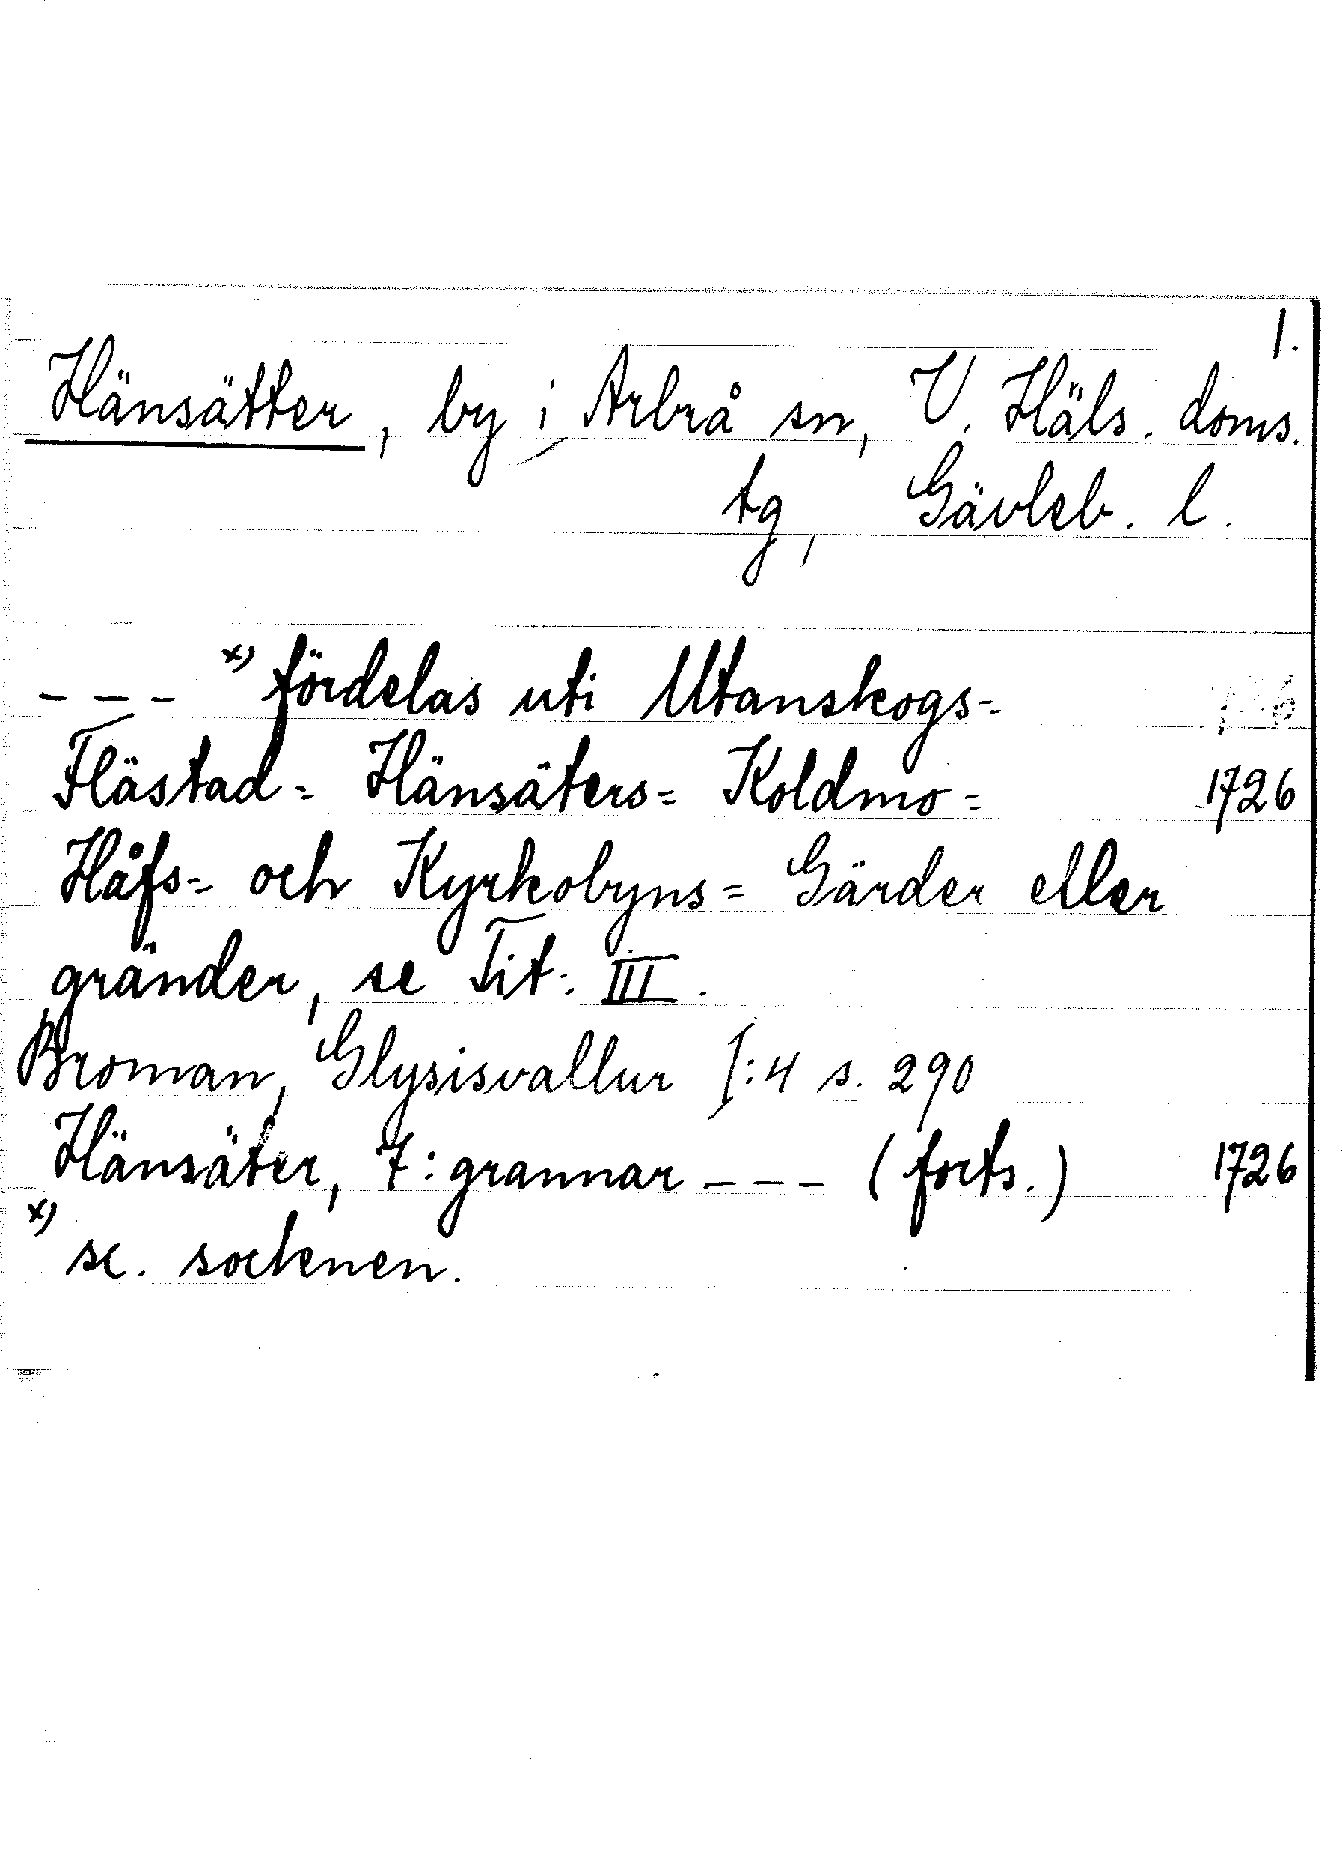 1.
Hänsätter, by i Arbrå sn, V. Häls. doms.
tg, Gävleb. l.
- - - x) fördelas uti Utanskogs=
Flästad= Hänsäters= Koldmo= 1726
Håfs= och Kyrkobyns= Gärder eller
gränder, se Tit: III.
Broman, Glysisvallur I:4 s. 290
Hänsäter, 7: grannar - - - (forts.) 1726
x) sc. socknen.